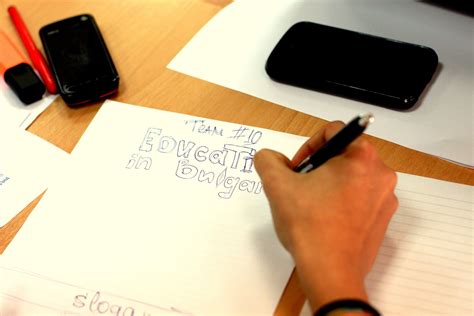 TEAM #10
EducaTi
in Bulgar
slogan